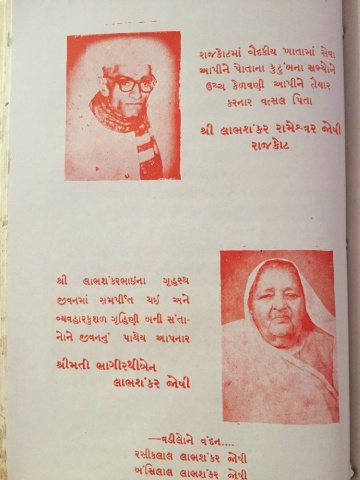 રાજકોટમાં વૈદકીય ખાતામાં સેવા
આપીને પોતાના કુટુંબના સભ્યોને
ઉચ્ચ કેળવણી આપીને તૈયાર
કરનાર વત્સલ પિતા
શ્રી લાભશંકર રામેશ્વર જોષી
રાજકોટ
શ્રી લાભશંકરભાઇના ગૃહસ્થ
જીવનમાં સમર્પીત થઇ અને
વ્યવહારકુશળ ગૃહિણી બની સંતા-
નોને જીવનનું પાથેય આપનાર
શ્રીમતી ભાગિરથીબેન
લાભશંકર જોષી
—વડીલોને વંદન....
રસીકલાલ લાભશંકર જોષી
બંસિલાલ લાભશંકર જોષી